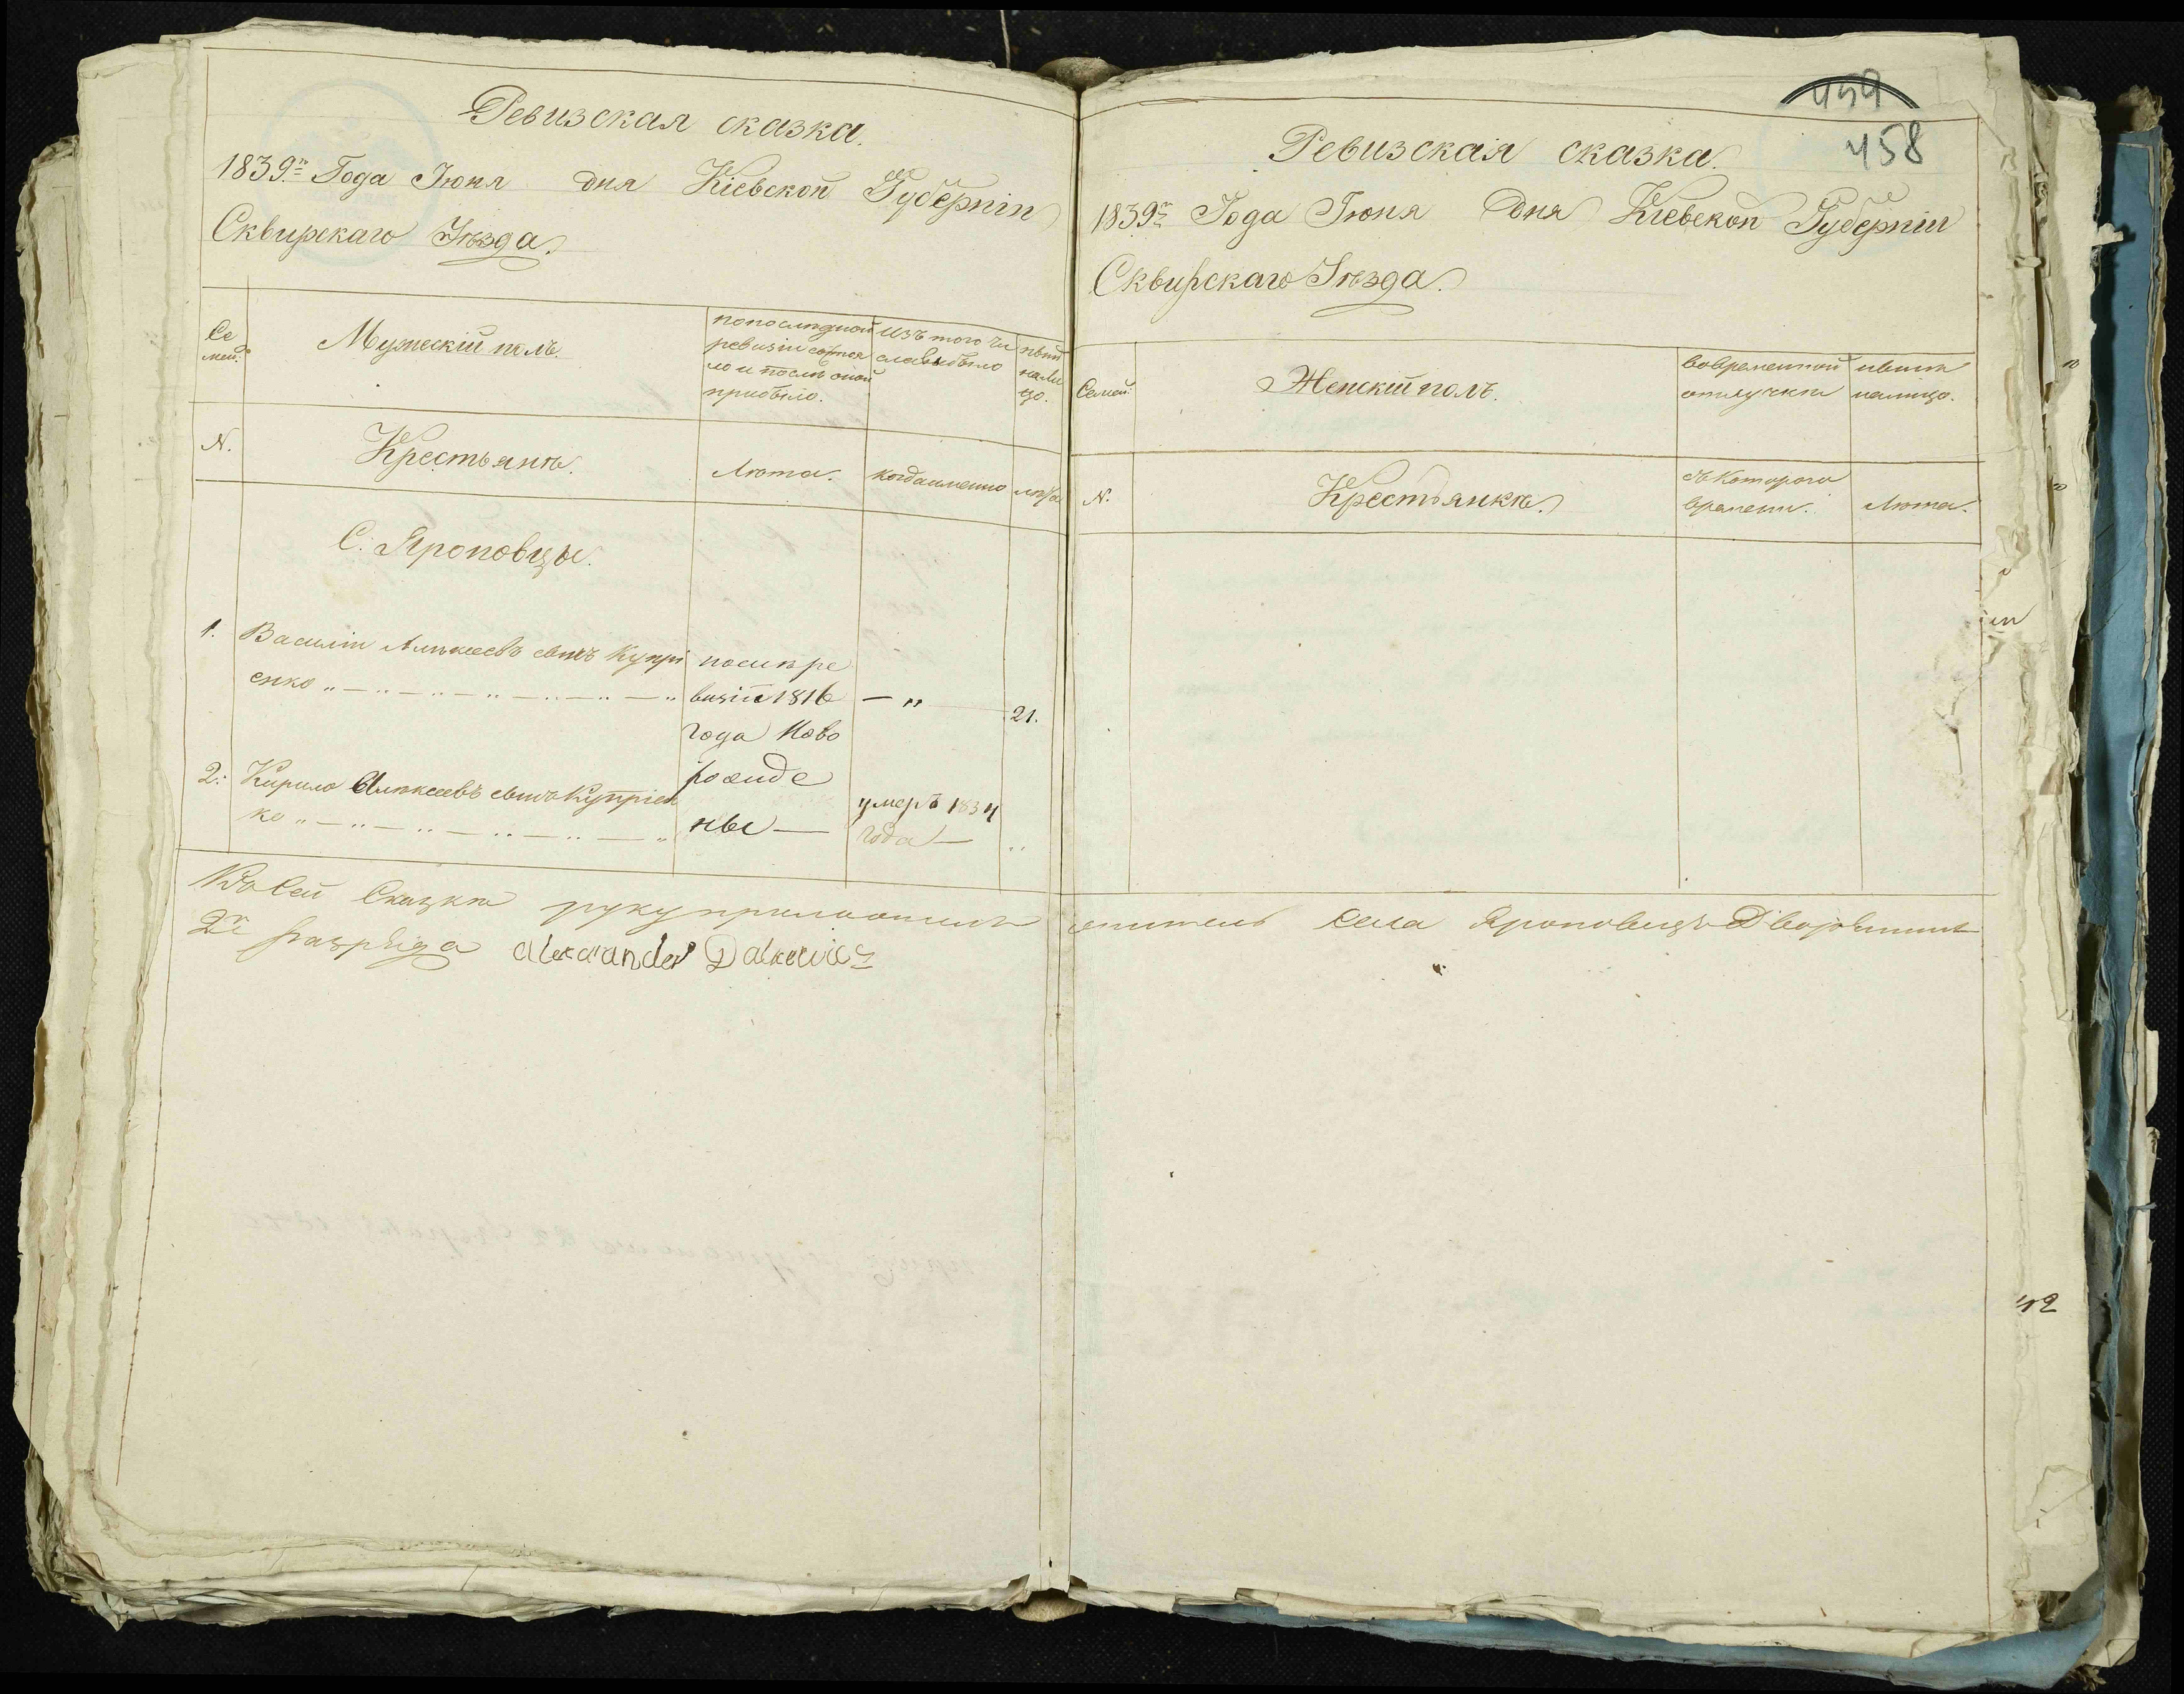 Ревизская сказка.
1839го Года Іюня дня Кіевской Губерніи
Сквирскаго Уѣзда.
Се
мей.
Мужескій полъ.
попослѣдней
ревизіи состоя
ло и послѣ оной
прибыло.
Изъ того чи
сла выбыло
нынѣ
нали
цо.
N.
Крестьянѣ.
Лѣта.
когда именно
лѣта
С. Яроповцы.
1. Василій Алѣксеевъ сынъ Купрі
енко
послѣ ре
визіи 1816
года Ново
рожде
ны —
— „
21.
2. Кирило Алѣксеевъ сынъ Купріен
ко
умеръ 1834
года —
Ксей Сказкѣ руку приложилъ житель села Яроповецъ Дворянинъ
2го разряда Alexander Dalkewicz
459
458
Ревизская сказка.
1839го Года Іюня Дня Кіевской Губерніи
Сквирскаго Уѣзда.
Семей:
Женскій полъ.
вовременной
отлучкѣ
нынѣ
налицо.
N.
Крестьянкѣ.
съ котораго
времени.
Лѣта.
42